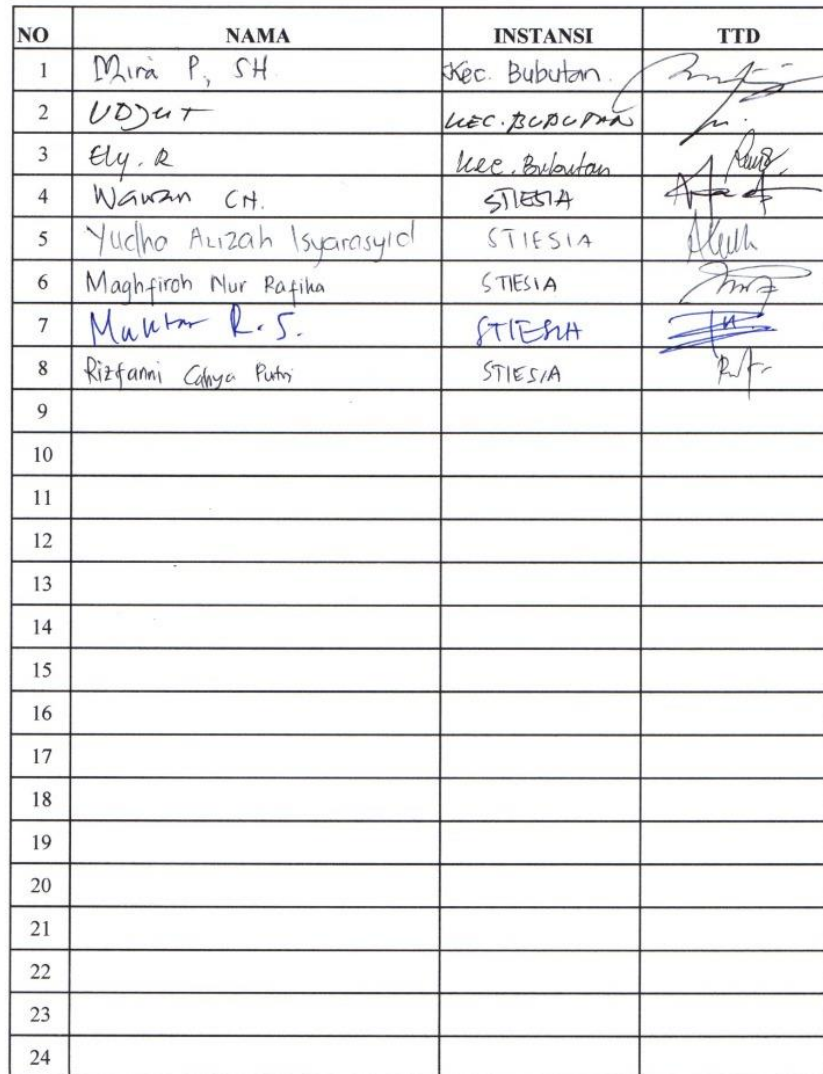 NO NAMA INSTANSI TTD
1 Mira P, SH Kec. Bubutan.
2 UDJUT KEC. BUBUTAN
3 Ely. R Kec. Bubutan
4 Wawan CH. STIESIA
5 Yudho Azizah Isyarasyid STIESIA
6 Maghfiroh Nur Rafika STIESIA
7 R.S. STIESIA
8 Rizfanni Cahya Putri STIESIA
9
10
11
12
13
14
15
16
17
18
19
20
21
22
23
24